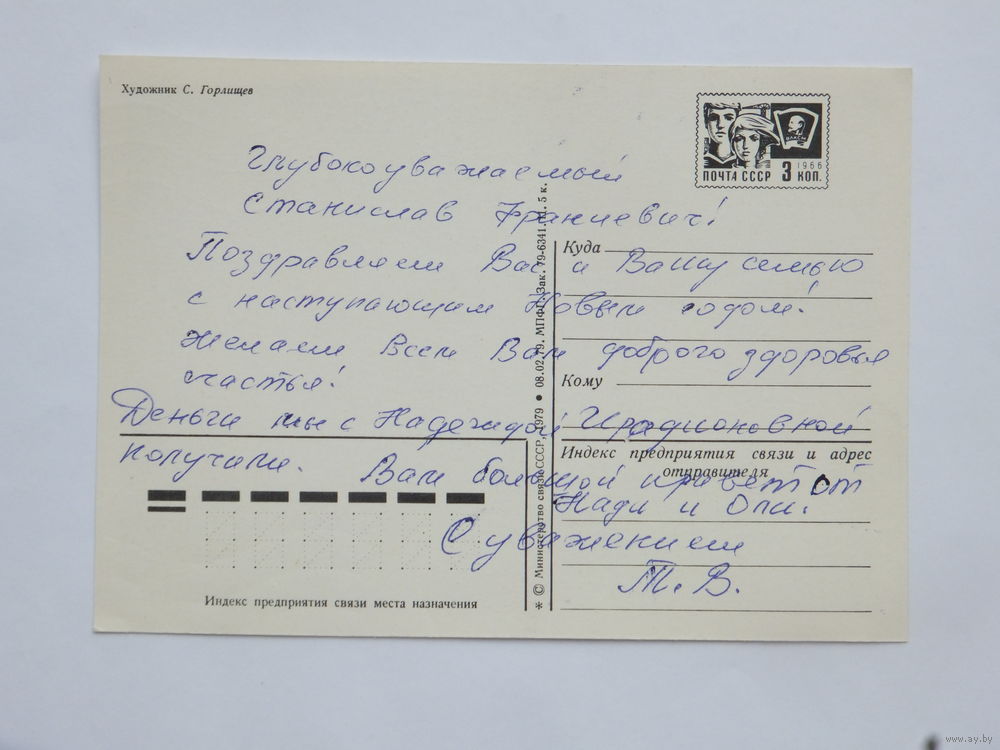 Художник С. Горлищев
1966
ПОЧТА СССР 3 КОП.
ВЛКСМ
Глубокоуважаемый
Станислав Францевич!
Поздравляем Вас и Вашу семью
с наступающим Новым годом!
Желаем Всем Вам доброго здоровья
счастья!
Деньги мы с Надеждой Иродионовной
получили. Вам большой привет от
Нади и Оли.
С уважением
Т. В.
Куда
Кому
Индекс предприятия связи и адрес
отправителя
Индекс предприятия связи места назначения
* © Министерство связи СССР, 1979 ● 08.02.79. МПФГ. Зак. 79-6341. Ц. 5 к.
www.ay.by